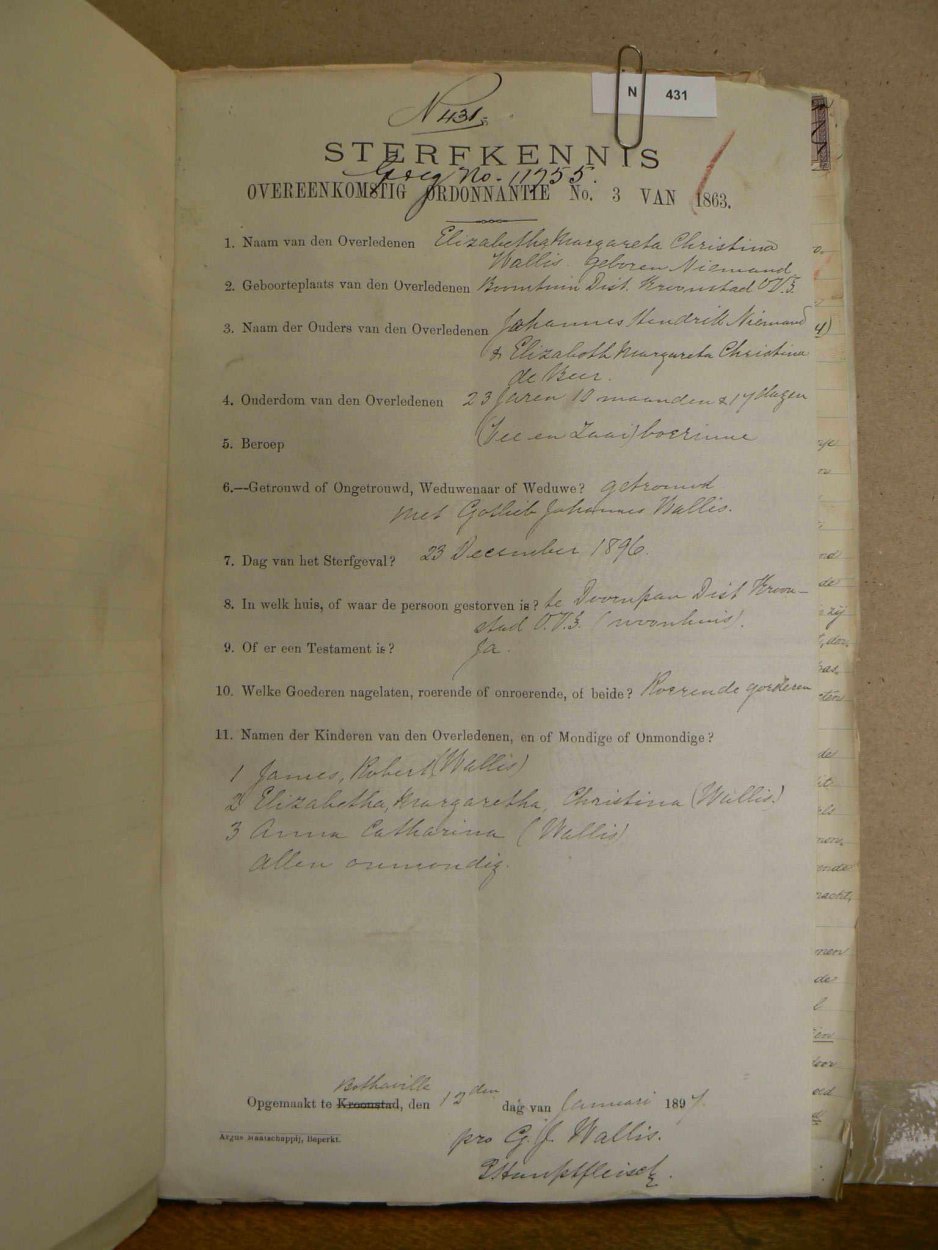 N 431
N 431.
STERFKENNIS
Gereg No. 11755.
OVEREENKOMSTIG ORDONNANTIE No. 3 VAN 1863.
1. Naam van den Overledenen Elizabetha Margareta Christina
Wallis. geboren Niemand
2. Geboorteplaats van den Overledenen Boomtuin Dist. Kroonstad O.V.S.
3. Naam der Ouders van den Overledenen Johannes Hendrik Niemand
& Elizabeth Margareta Christina
de Beer.
4. Ouderdom van den Overledenen 23 Jaren 10 maanden & 17 dagen
5. Beroep (Vee en Zaai) boerinne
6.—Getrouwd of Ongetrouwd, Weduwenaar of Weduwe? getrouwd
met Gotlieb Johannes Wallis.
7. Dag van het Sterfgeval? 23 December 1896.
8. In welk huis, of waar de persoon gestorven is? te Doornpan Dist Kroon-
stad O.V.S. (woonhuis).
9. Of er een Testament is? Ja.
10. Welke Goederen nagelaten, roerende of onroerende, of beide? Roerende goederen
11. Namen der Kinderen van den Overledenen, en of Mondige of Onmondige?
1 James, Robert (Wallis)
2 Elizabetha, Margaretha, Christina (Wallis)
3 Anna Catharina (Wallis)
allen onmondig.
Bothaville
Opgemaakt te Kroonstad, den 12den dag van Januari 1897.
pro G. J. Wallis.
Hauptfleisch.
Argus Maatschappij, Beperkt.